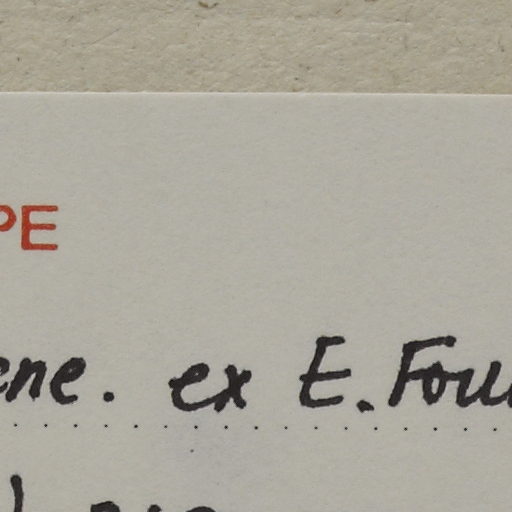 PE
ene. ex E. Fou